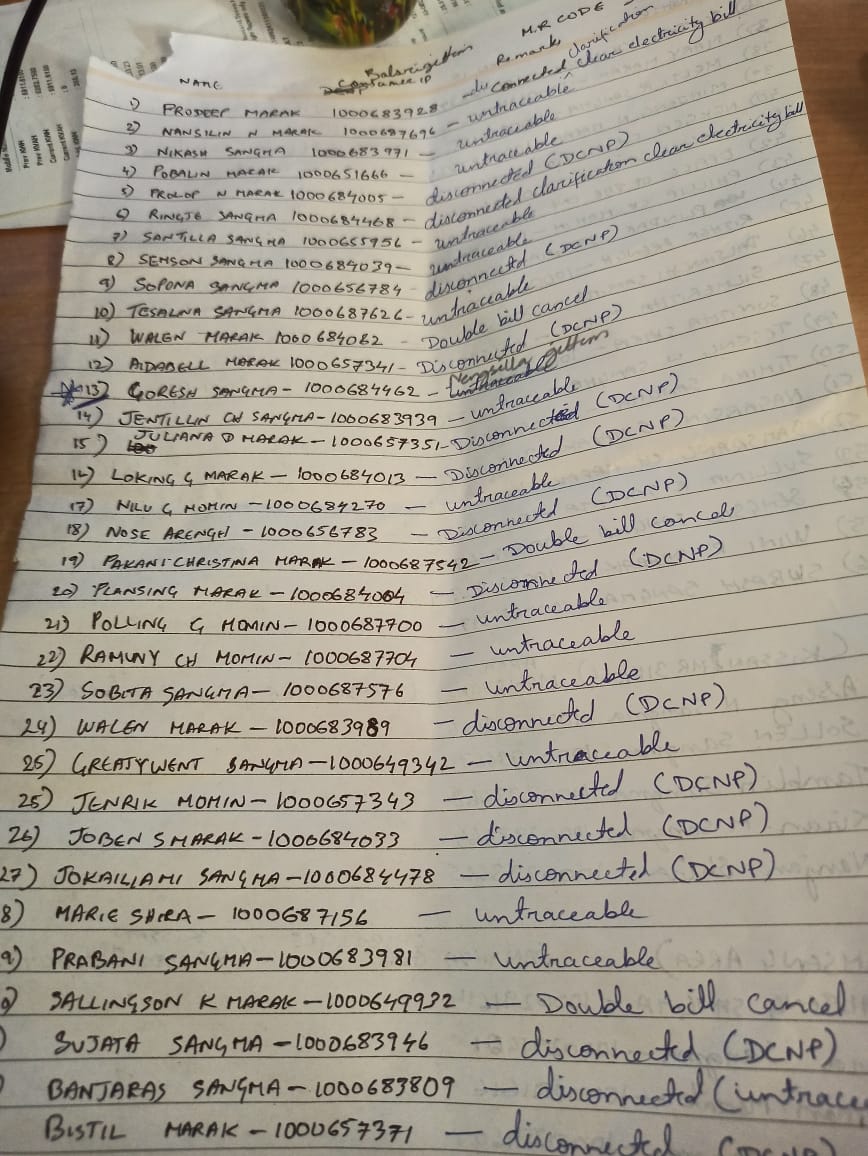 M.R CODE
NAME Balsrigittim Consumer ID Remarks
1) PRODEEP MARAK 1000683928 - disconnected clarification clear electricity bill
2) NANSILIN N MARAK 1000687696 - untraceable
3) NIKASH SANGMA 1000683971 - untraceable
4) POBALIN MARAK 1000651666 - untraceable
5) PROLOP N MARAK 1000684005 - disconnected (DCNP)
6) RINGJE SANGMA 1000684468 - disconnected clarification clear electricity bill
7) SANTILLA SANGMA 1000655956 - untraceable
8) SEMSON SANGMA 1000684039 - untraceable
9) SOPONA SANGMA 1000656784 - disconnected (DCNP)
10) TESALINA SANGMA 1000687626 - untraceable
11) WALEN MARAK 1000684062 - Double bill cancel
12) AIDABELL MARAK 1000657341 - Disconnected (DCNP)
13) GORESH SANGMA - 1000684462 - untraceable gittim
14) JENTILLIN CH SANGMA - 1000683939 - untraceable
15) JULIANA D MARAK - 1000657351 - Disconnected (DCNP)
16) LOKING G MARAK - 1000684013 - Disconnected (DCNP)
17) NILU G MOMIN - 1000684270 - untraceable
18) NOSE ARENGH - 1000656783 - Disconnected (DCNP)
19) PAKANI CHRISTINA MARAK - 1000687542 - Double bill cancel
20) PLANSING MARAK - 1000684004 - Disconnected (DCNP)
21) POLLING G MOMIN - 1000687700 - untraceable
22) RAMUNY CH MOMIN - 1000687704 - untraceable
23) SOBITA SANGMA - 1000687576 - untraceable
24) WALEN MARAK - 1000683989 - disconnected (DCNP)
25) GREATYWENT SANGMA - 1000649342 - untraceable
25) JENRIK MOMIN - 1000657343 - disconnected (DCNP)
26) JOBEN S MARAK - 1000684033 - disconnected (DCNP)
27) JOKAILIAMI SANGMA - 1000684478 - disconnected (DCNP)
8) MARIE SHIRA - 1000687156 - untraceable
9) PRABANI SANGMA - 1000683981 - untraceable
0) SALLINGSON K MARAK - 1000649932 - Double bill cancel
) SUJATA SANGMA - 1000683946 - disconnected (DCNP)
) BANJARAS SANGMA - 1000683809 - disconnected (untracea
BISTIL MARAK - 1000657371 - disconnected (DCNP)